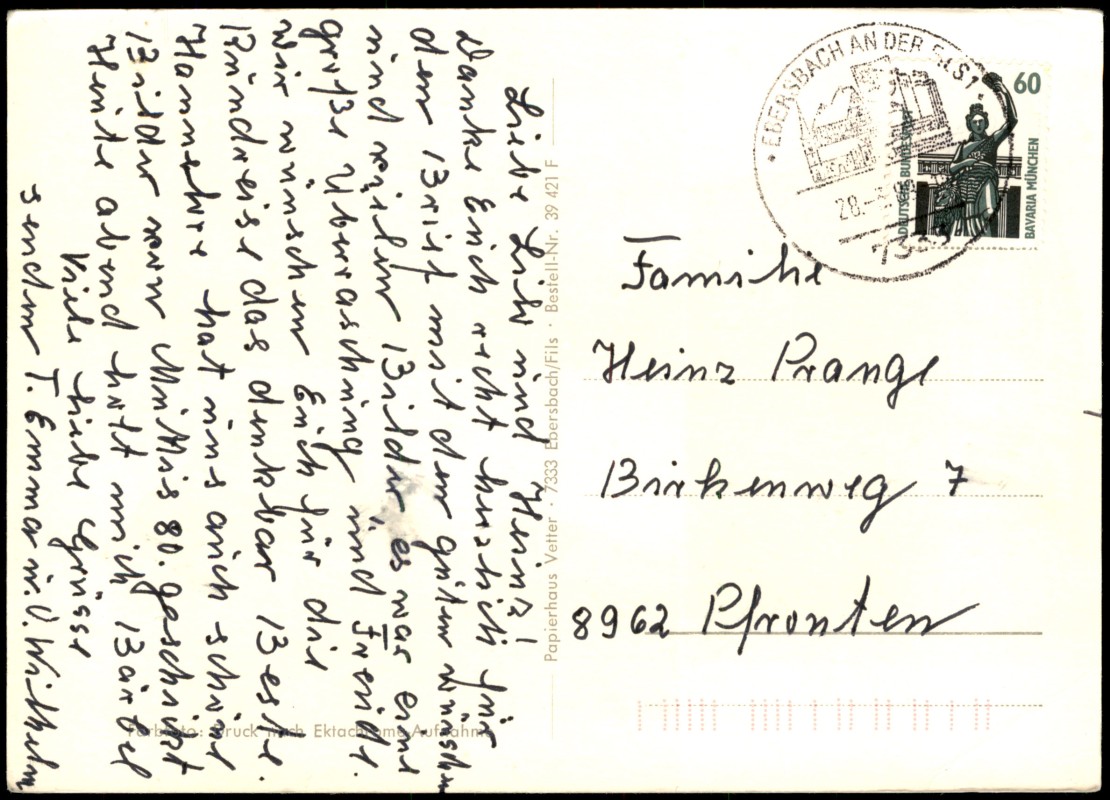 Liebe Lilo und Heinz!
Danke Euch recht herzlich für
den Brief mit den guten Wünschen
und vielen Bilder, es war eine
große Überaschung und Freude.
Wir wünschen Euch für die
Rundreise das denkbar Beste.
Hannelore hat uns auch schöne
Bilder vom Muttis 80. geschickt
Heute abend holt mich Bärbel
Viele liebe Grüsse
senden T. Emma u. O. Wilhelm
Papierhaus Vetter · 7333 Ebersbach/Fils · Bestell-Nr. 39 421 F
Farbfoto: Druck nach Ektachrome-Aufnahme
EBERSBACH AN DER FILS 1
28.
7333
60
DEUTSCHE BUNDESPOST
BAVARIA MÜNCHEN
Familie
Heinz Prange
Birkenweg 7
8962 Pfronten